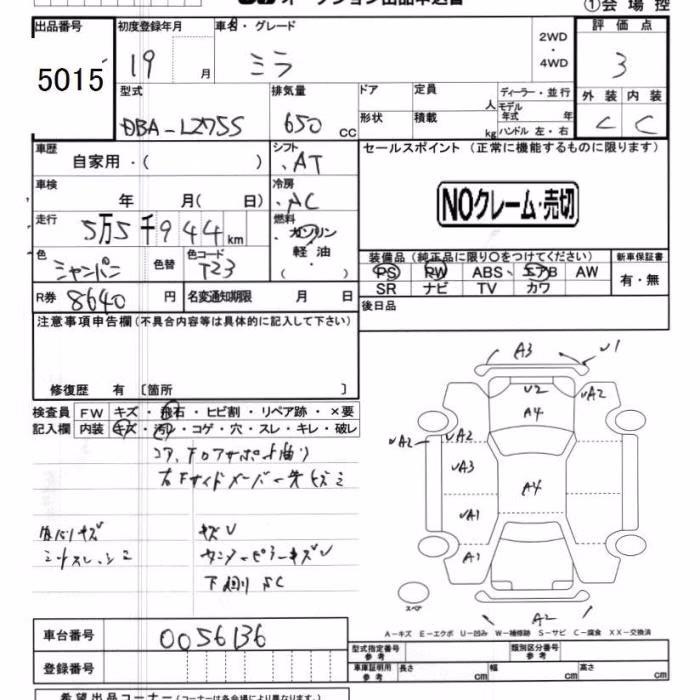 オークション出品申込書
①会場控
出品番号
5015
初度登録年月
19 月
車名・グレード
ミラ
2WD
・
4WD
評価点
3
外装 内装
C C
型式
DBA-L275S
排気量
650 cc
ドア
定員
人
形状
積載
kg
ディーラー・並行
モデル
年式 年
ハンドル 左・右
車歴
自家用・( )
シフト
AT
車検
年 月( 日)
冷房
AC
走行
5万5千944km
燃料
ガソリン
軽油
・( )
色
シャンパン
色替
色コード
T23
R券 8640 円
名変通知期限 月 日
セールスポイント(正常に機能するものに限ります)
NOクレーム・売切
装備品(純正品に限り〇をつけてください)
PS PW ABS エアB AW
SR ナビ TV カワ
新車保証書
有・無
後日品
注意事項申告欄(不具合内容等は具体的に記入して下さい)
修復歴 有 〔箇所 〕
検査員
記入欄
FW キズ・飛石・ヒビ割・リペア跡・×要
内装 キズ・汚レ・コゲ・穴・スレ・キレ・破レ
キズU
下廻りSC
A3
U1
U2
A2
A4
A2
A2
A3
A4
A1
A1
A2
スペア
A-キズ E-エクボ U-凹み W-補修跡 S-サビ C-腐食 XX-交換済
車台番号
0056136
登録番号
型式指定番号
参考
類別区分番号
参考
車庫証明用
参考
長さ cm
幅 cm
高さ cm
希望出品コーナー(コーナーは各会場により